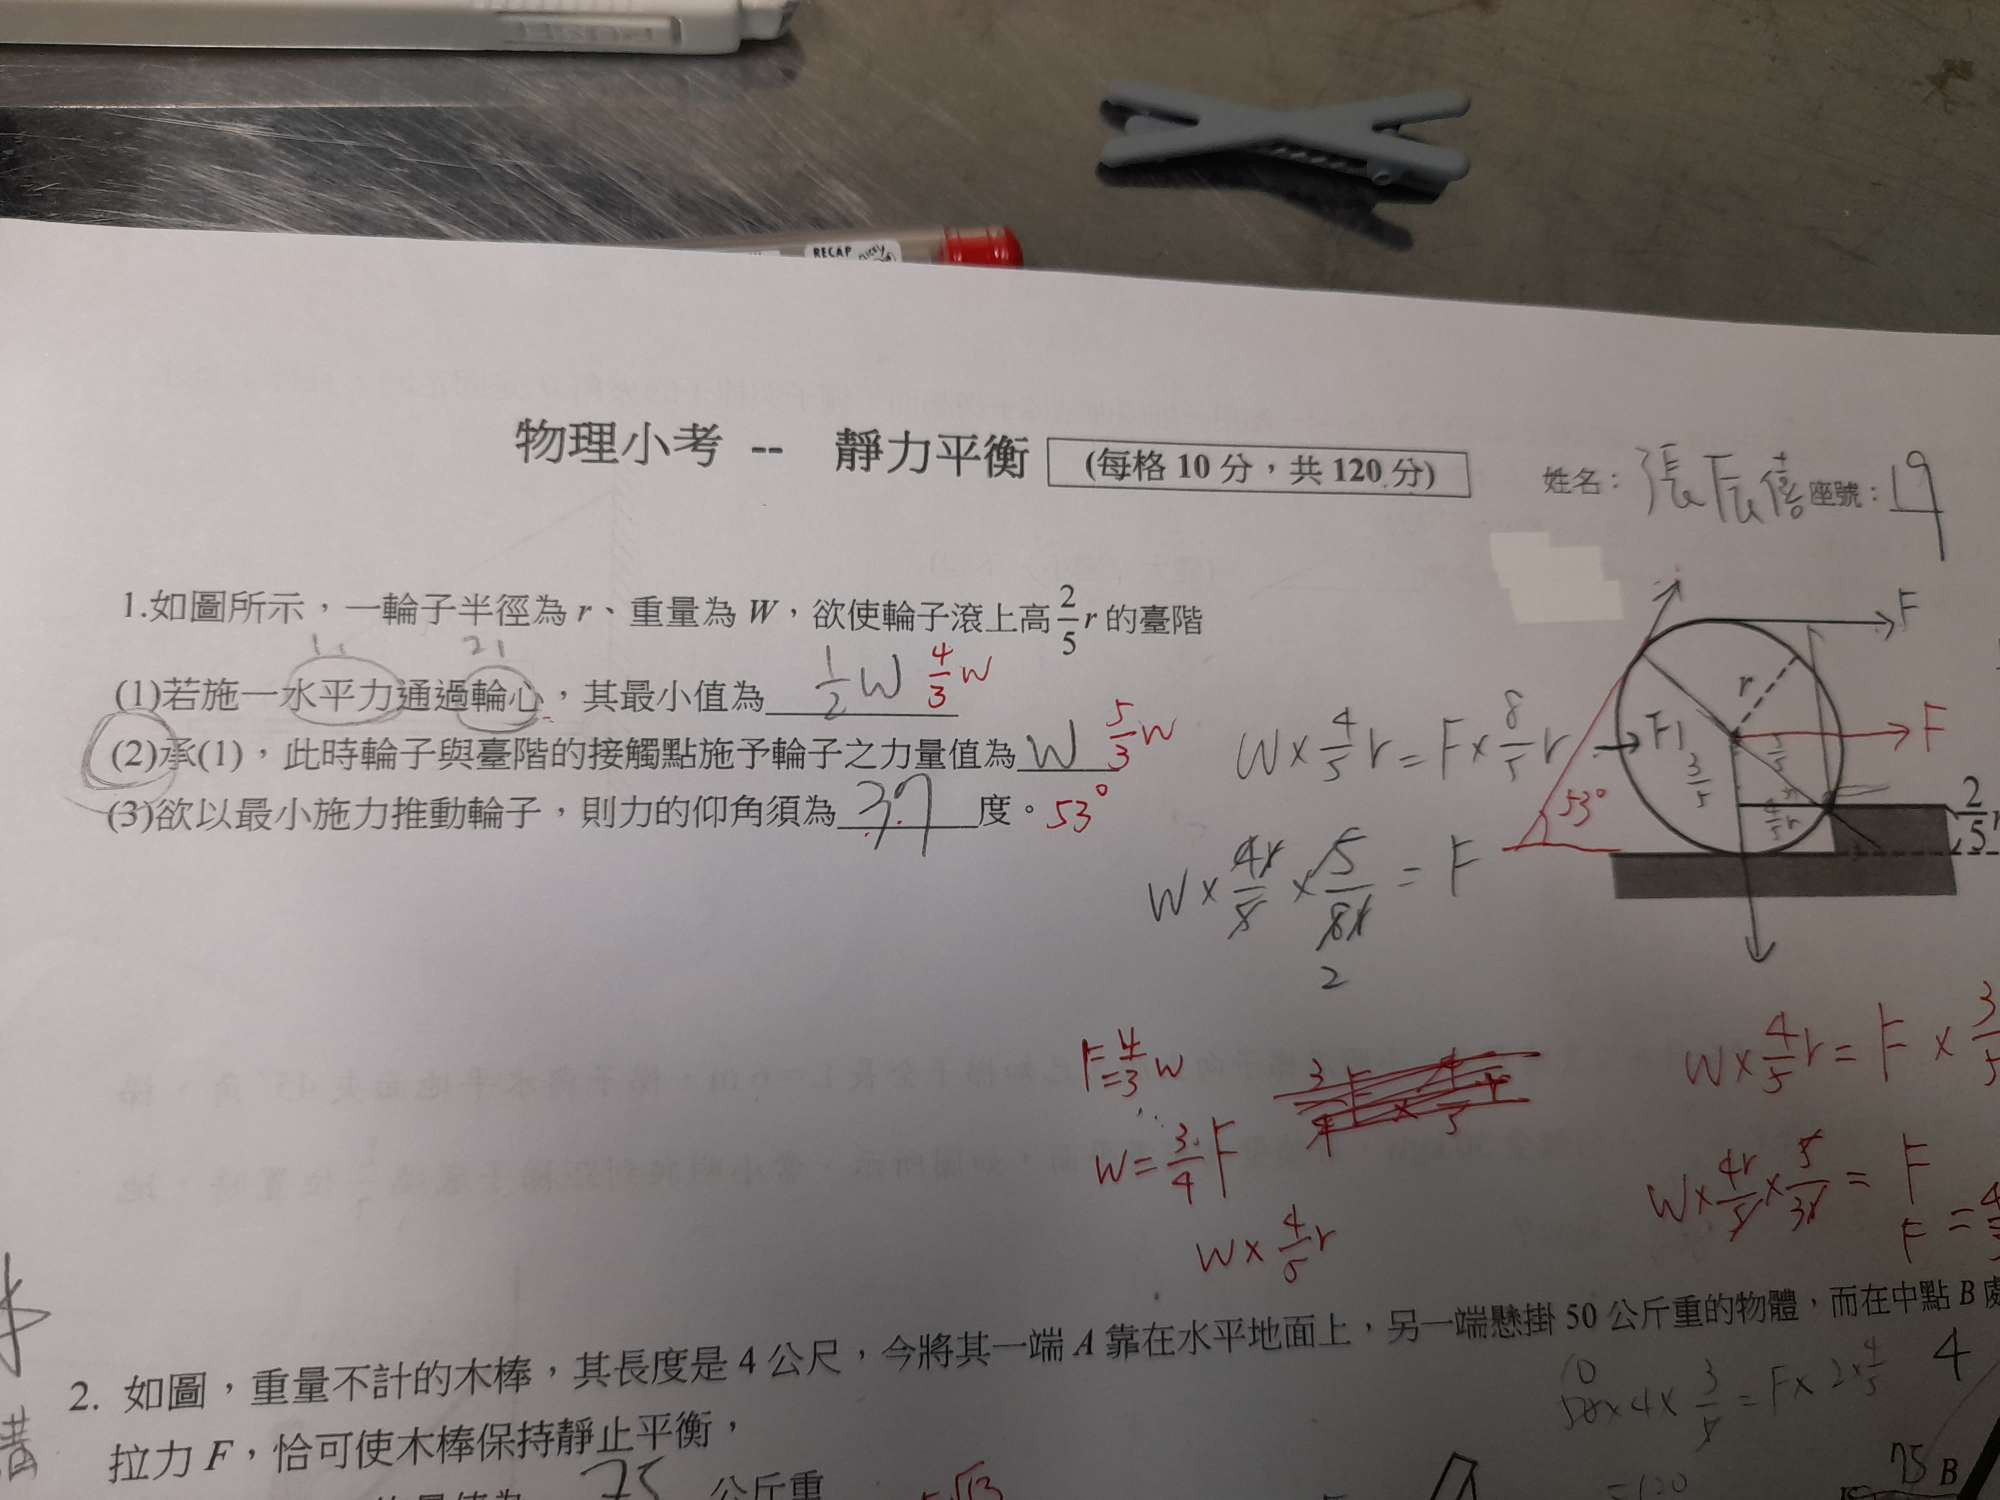 RECAP
物理小考 -- 靜力平衡 (每格 10 分，共 120 分)
姓名： 張辰禧 座號： 19
1.如圖所示，一輪子半徑為 r、重量為 W，欲使輪子滾上高 2/5 r 的臺階
(1)若施一水平力通過輪心，其最小值為 1/2 W 4/3 W
(2)承(1)，此時輪子與臺階的接觸點施予輪子之力量值為 W 5/3 W
(3)欲以最小施力推動輪子，則力的仰角須為 37 度。 53°
F
r
F
F
3/5
4/5 r
53°
2/5 r
W × 4/5 r = F × 8/5 r
W × 4r/5 × 5/8r = F
2
F = 4/3 W
W = 3/4 F
W × 4/5 r
W × 4/5 r = F × 3/5
W × 4r/5 × 5/3r = F
F = 4/3
2. 如圖，重量不計的木棒，其長度是 4 公尺，今將其一端 A 靠在水平地面上，另一端懸掛 50 公斤重的物體，而在中點 B 處
拉力 F，恰可使木棒保持靜止平衡，
10
50 × 4 × 3/5 = F × 2 × 4/5
4
75 公斤重
75 B